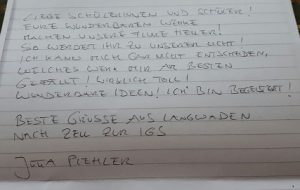 LIEBE SCHÜLERINNEN UND SCHÜLER!
EURE WUNDERBAREN WERKE
MACHEN UNSERE
SO WERDET IHR ZU UNSEREM LICHT!
ICH KANN MICH GAR NICHT ENTSCHEIDEN,
WELCHES WERK MIR AM BESTEN
GEFÄLLT! WIRKLICH TOLL!
WUNDERBARE IDEEN! ICH BIN BEGEISTERT!
BESTE GRÜSSE AUS LANGWADEN
NACH ZELL ZUR IGS
JUTTA PLEHLER